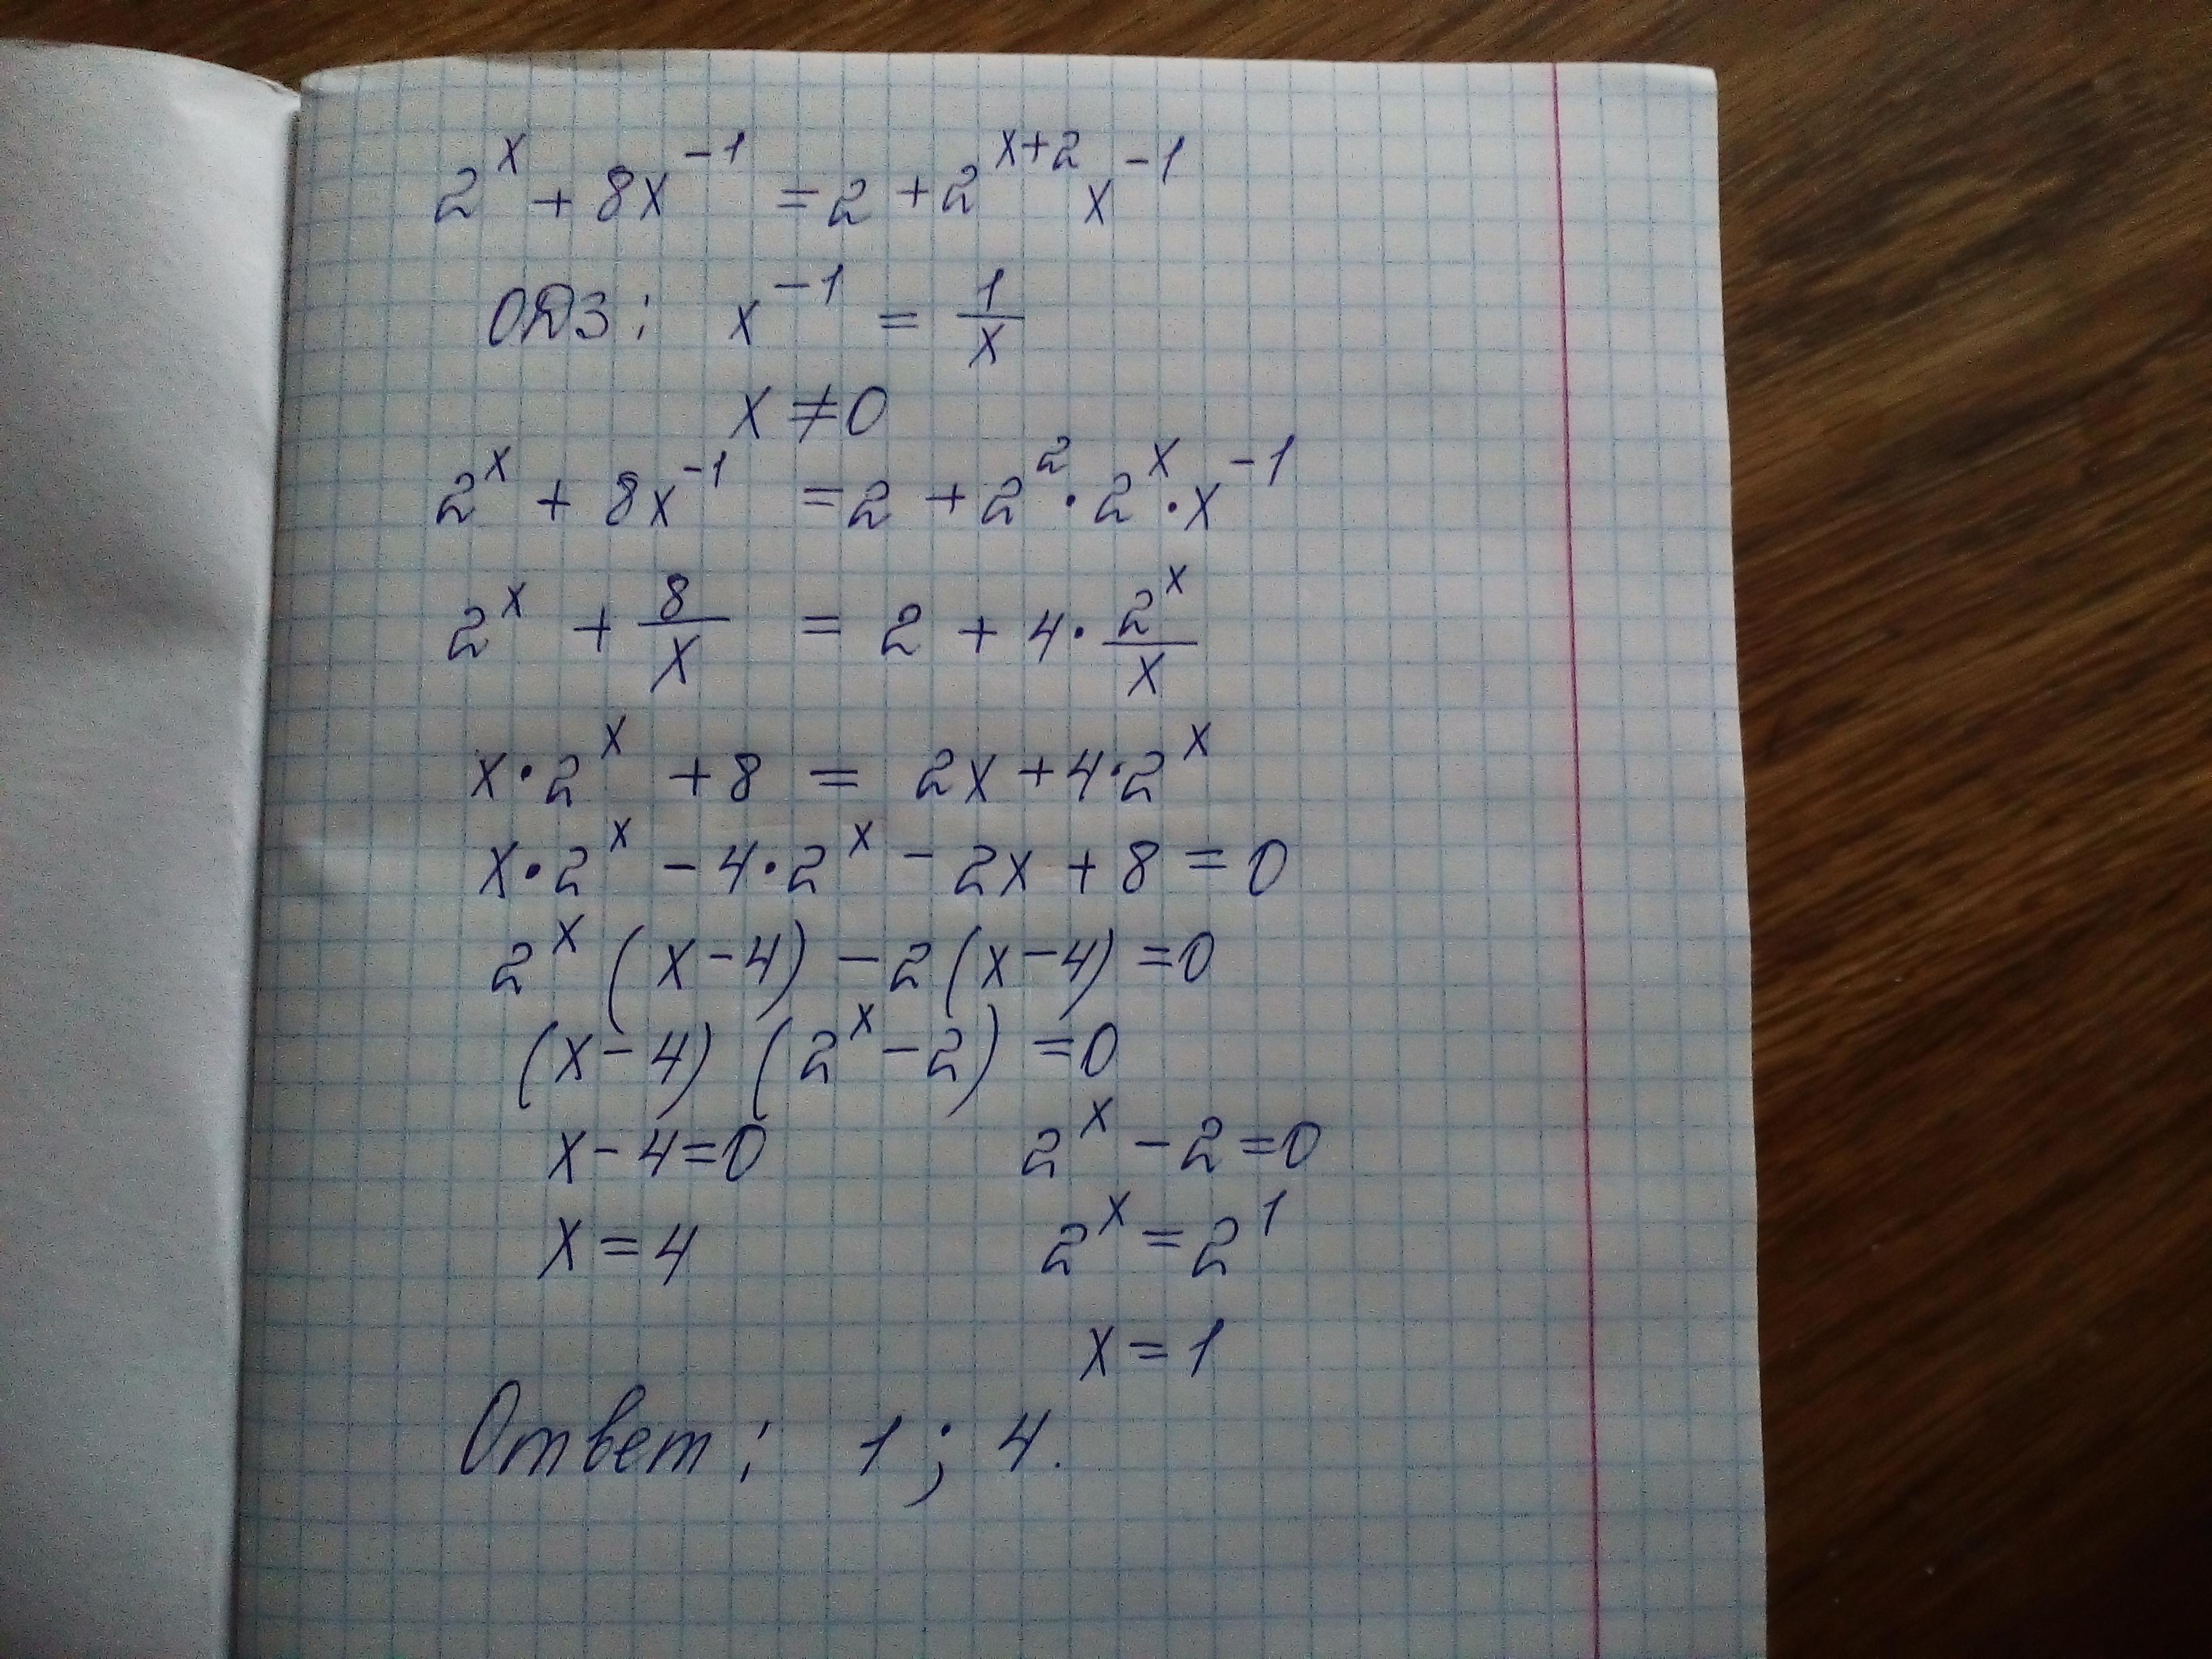 2^x + 8x^{-1} = 2 + 2^{x+2} x^{-1}
ОДЗ: x^{-1} = \frac{1}{x}
x ≠ 0
2^x + 8x^{-1} = 2 + 2^2 · 2^x · x^{-1}
2^x + \frac{8}{x} = 2 + 4 · \frac{2^x}{x}
x · 2^x + 8 = 2x + 4 · 2^x
x · 2^x - 4 · 2^x - 2x + 8 = 0
2^x (x - 4) - 2 (x - 4) = 0
(x - 4) (2^x - 2) = 0
x - 4 = 0 2^x - 2 = 0
x = 4 2^x = 2^1
x = 1
Ответ: 1; 4.